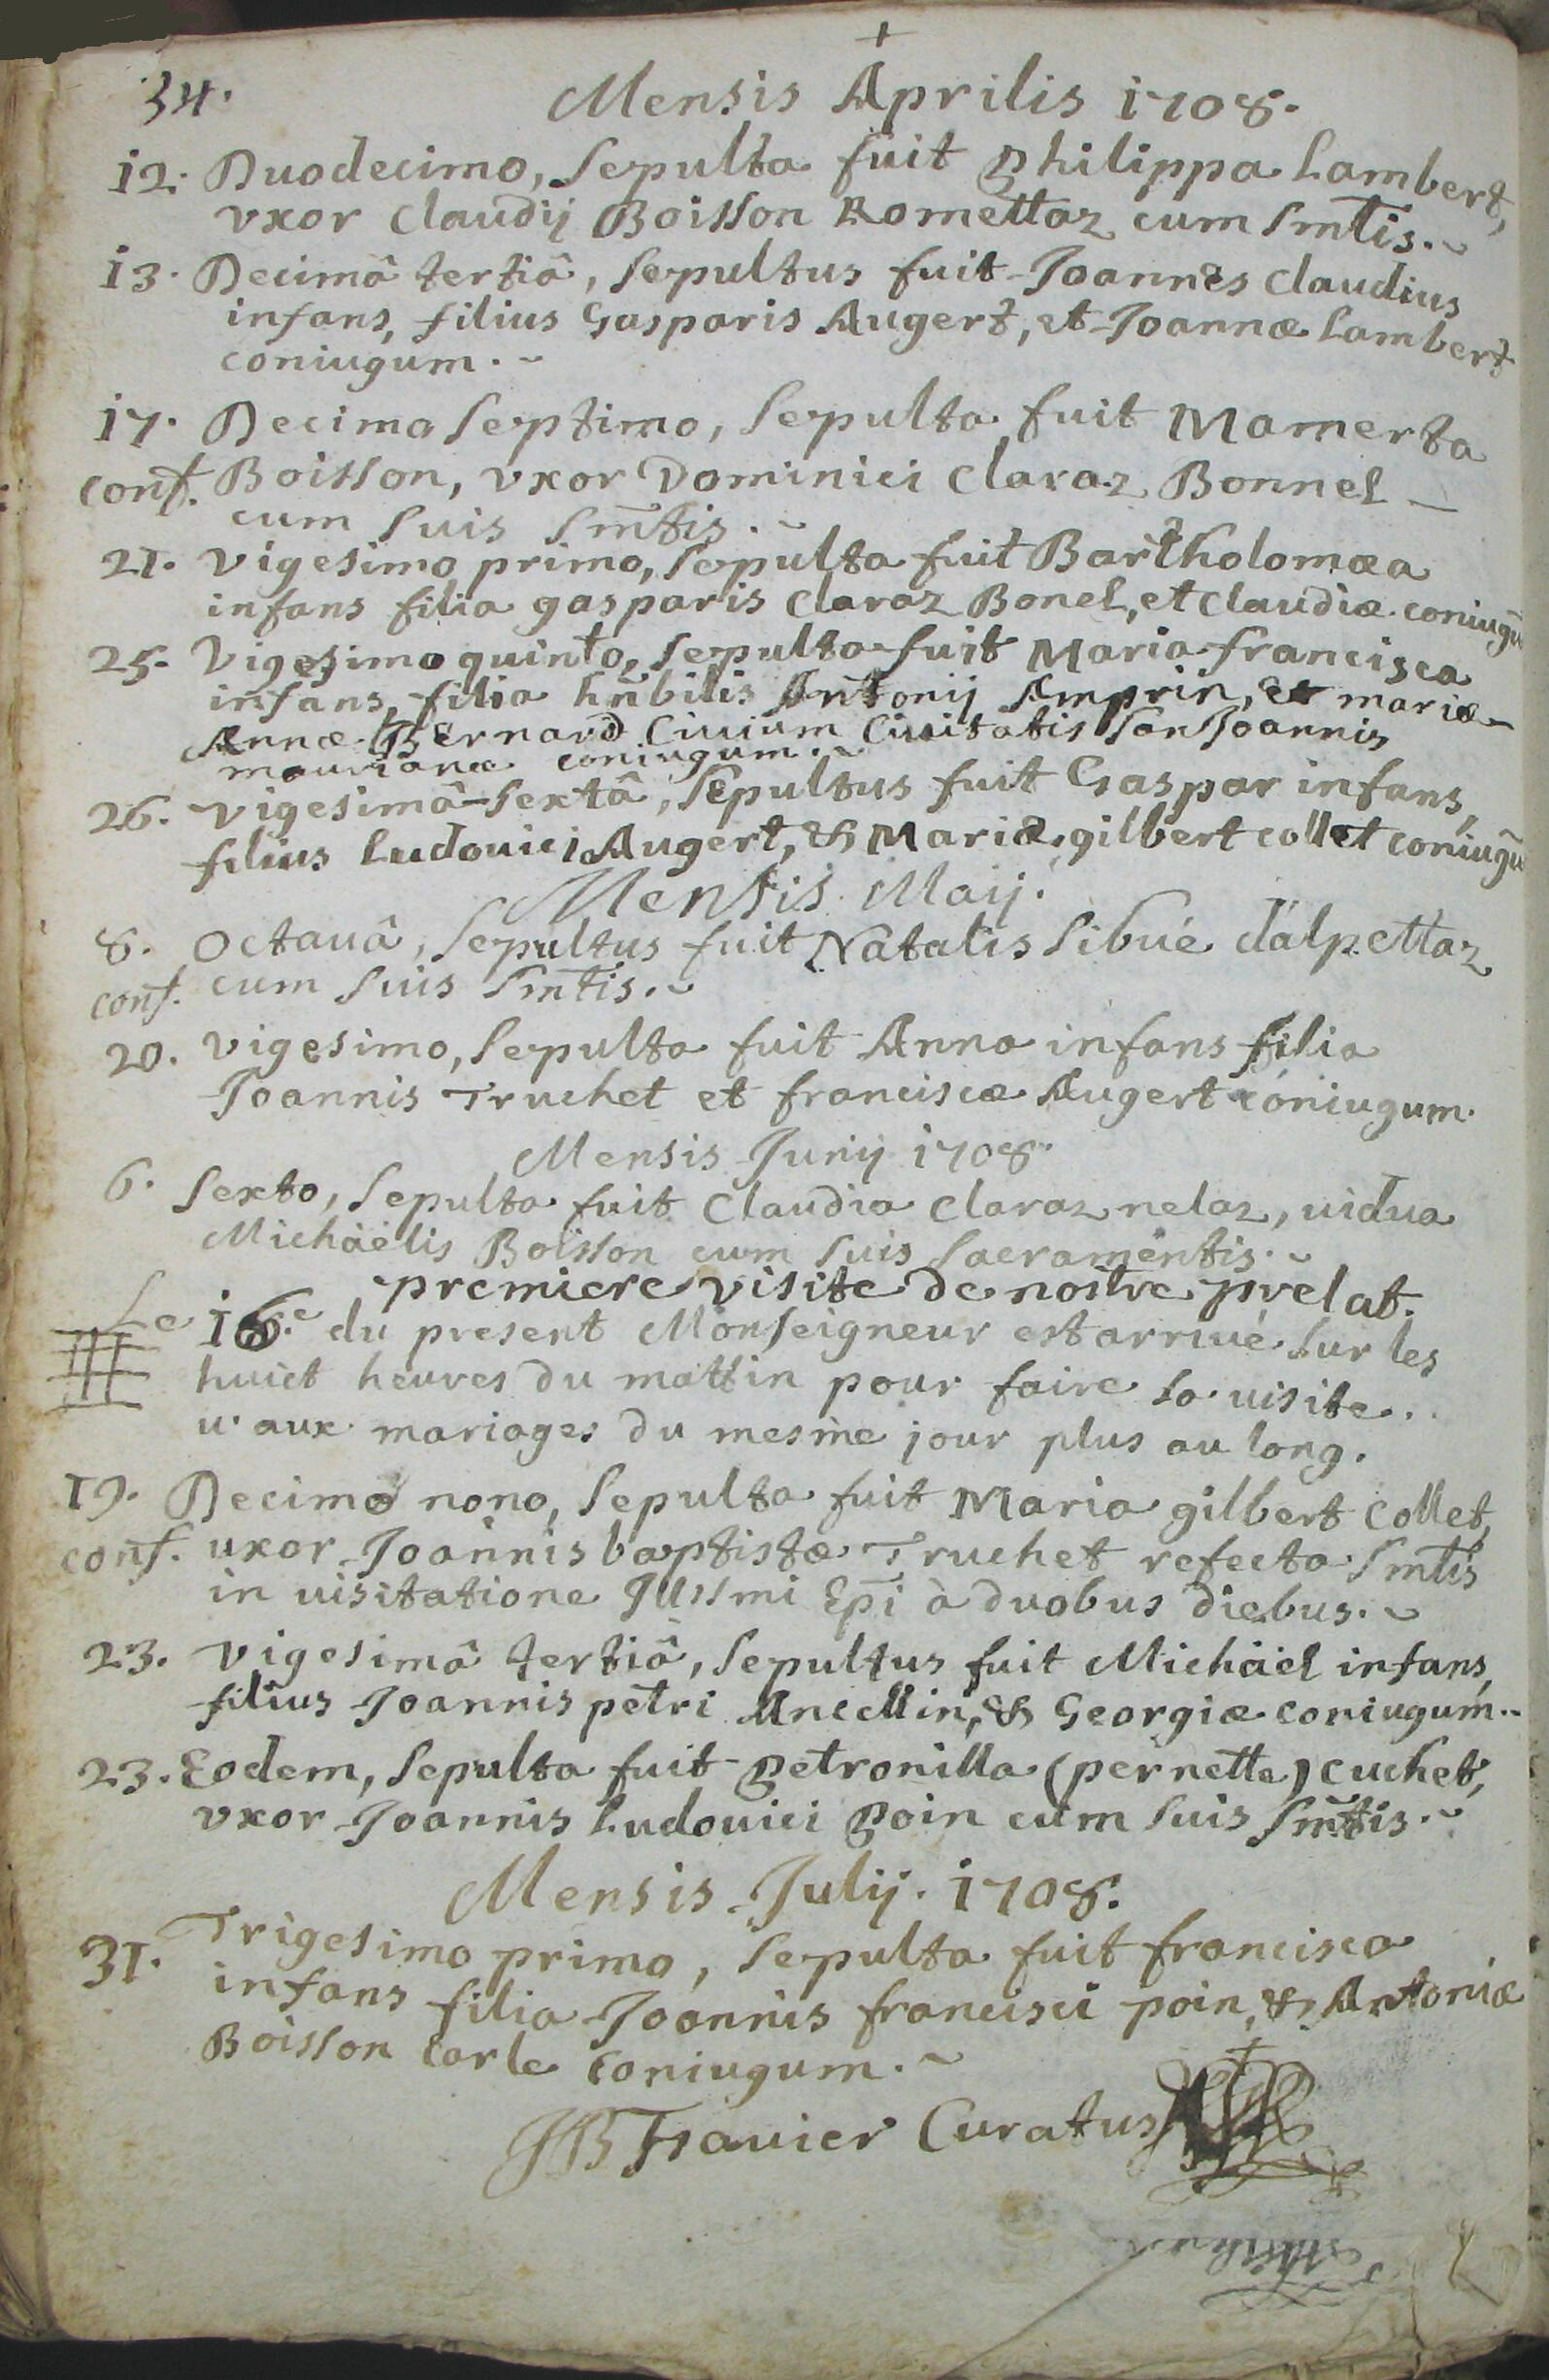 +
34.
Mensis Aprilis 1708.
12. Duodecimo, Sepulta fuit Philippa Lambert,
vxor Claudij Boisson Romettaz cum Smtis.~
13. Decimâ tertiâ, Sepultus fuit Joannes Claudius
infans, filius Gasparis Augert, et Joannæ Lambert
coniugum.~
17. Decimo Septimo, Sepulta fuit Mamerta
conf. Boisson, vxor Dominici Claraz Bonnel
cum Suis Smtis.~
21. Vigesimo primo, Sepulta fuit Bartholomæa
infans filia gasparis Claraz Bonel, et Claudiæ coniugū
25. Vigesimo quinto, Sepulta fuit Maria francisca
infans, filia hñbilis Antonij Amprin, et mariæ
Annæ Bernard Ciuium Ciuitatis San Joannis
maurianæ coniugum.~
26. Vigesimâ-Sextâ, Sepultus fuit Gaspar infans,
filius Ludouici Augert, & Mariæ gilbert collet coniugū
Mensis Maij.
8. Octauâ, Sepultus fuit Natalis Sibué d'alpettaz
conf. cum Suis Smtis.~
20. Vigesimo, Sepulta fuit Anna infans filia
Joannis Truchet et franciscæ Augert coniugum.
Mensis Junij 1708.
6. Sexto, Sepulta fuit Claudia Claraz nelaz, uidua
Michäelis Boisson cum Suis Sacramentis.~
premiere visite de nostre prelat.
Le 16.e du present Monseigneur est arriué Sur les
huict heures du mattin pour faire sa uisite..
u. aux mariages du mesme jour plus au long.
19. Decimo nono, Sepulta fuit Maria gilbert Collet,
conf. uxor Joannis baptistæ Truchet refecta Smtis
in uisitatione Illssmi Epi à duobus diebus.~
23. Vigesimâ tertiâ, Sepultus fuit Michäel infans,
filius Joannis petri Ancellin, & Georgiæ coniugum.
23. Eodem, Sepulta fuit Petronilla (pernette) Cuchet,
vxor Joannis Ludouici Poin cum Suis Smtis.~
Mensis Julij. 1708.
31. Trigesimo primo, Sepulta fuit francisca
infans filia Joannis francisci poin, & Antoniæ
Boisson Carle Coniugum.~
JB Frauier Curatus